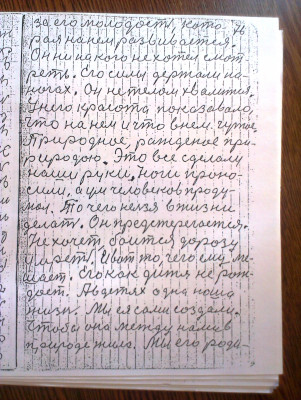 за его молодость, кото
рая на нем развивается.
Он ни на кого не хотел смот
реть. Его силы держали на
ногах. Он не телом хвалится,
У него красота показавало,
что на нем и что в нем. чуткое
Природное, рожденое при
риродою. Это все сделали
наши руки. Ноги прино
сили, а ум человеков проду
мал. То чего нельзя в жизни
делать. Он предстерегается.
Не хочет, боится дорогу
умереть. И вот то, чего ему ме
шает. Его как дитя не рож
дает. А в детях одна наша
жизнь. Мы ея сами создали.
Чтобы она между нами в
природе жила. Мы его роди-